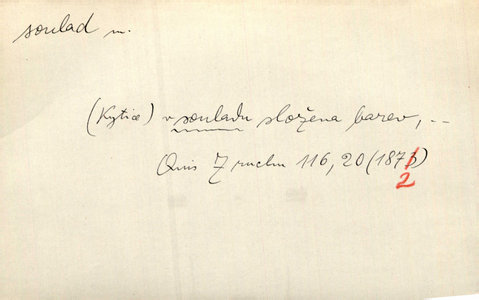 soulad m.
(Kytice) v souladu složena barev, ..
Quis Z ruchu 116, 20 (1873)
2